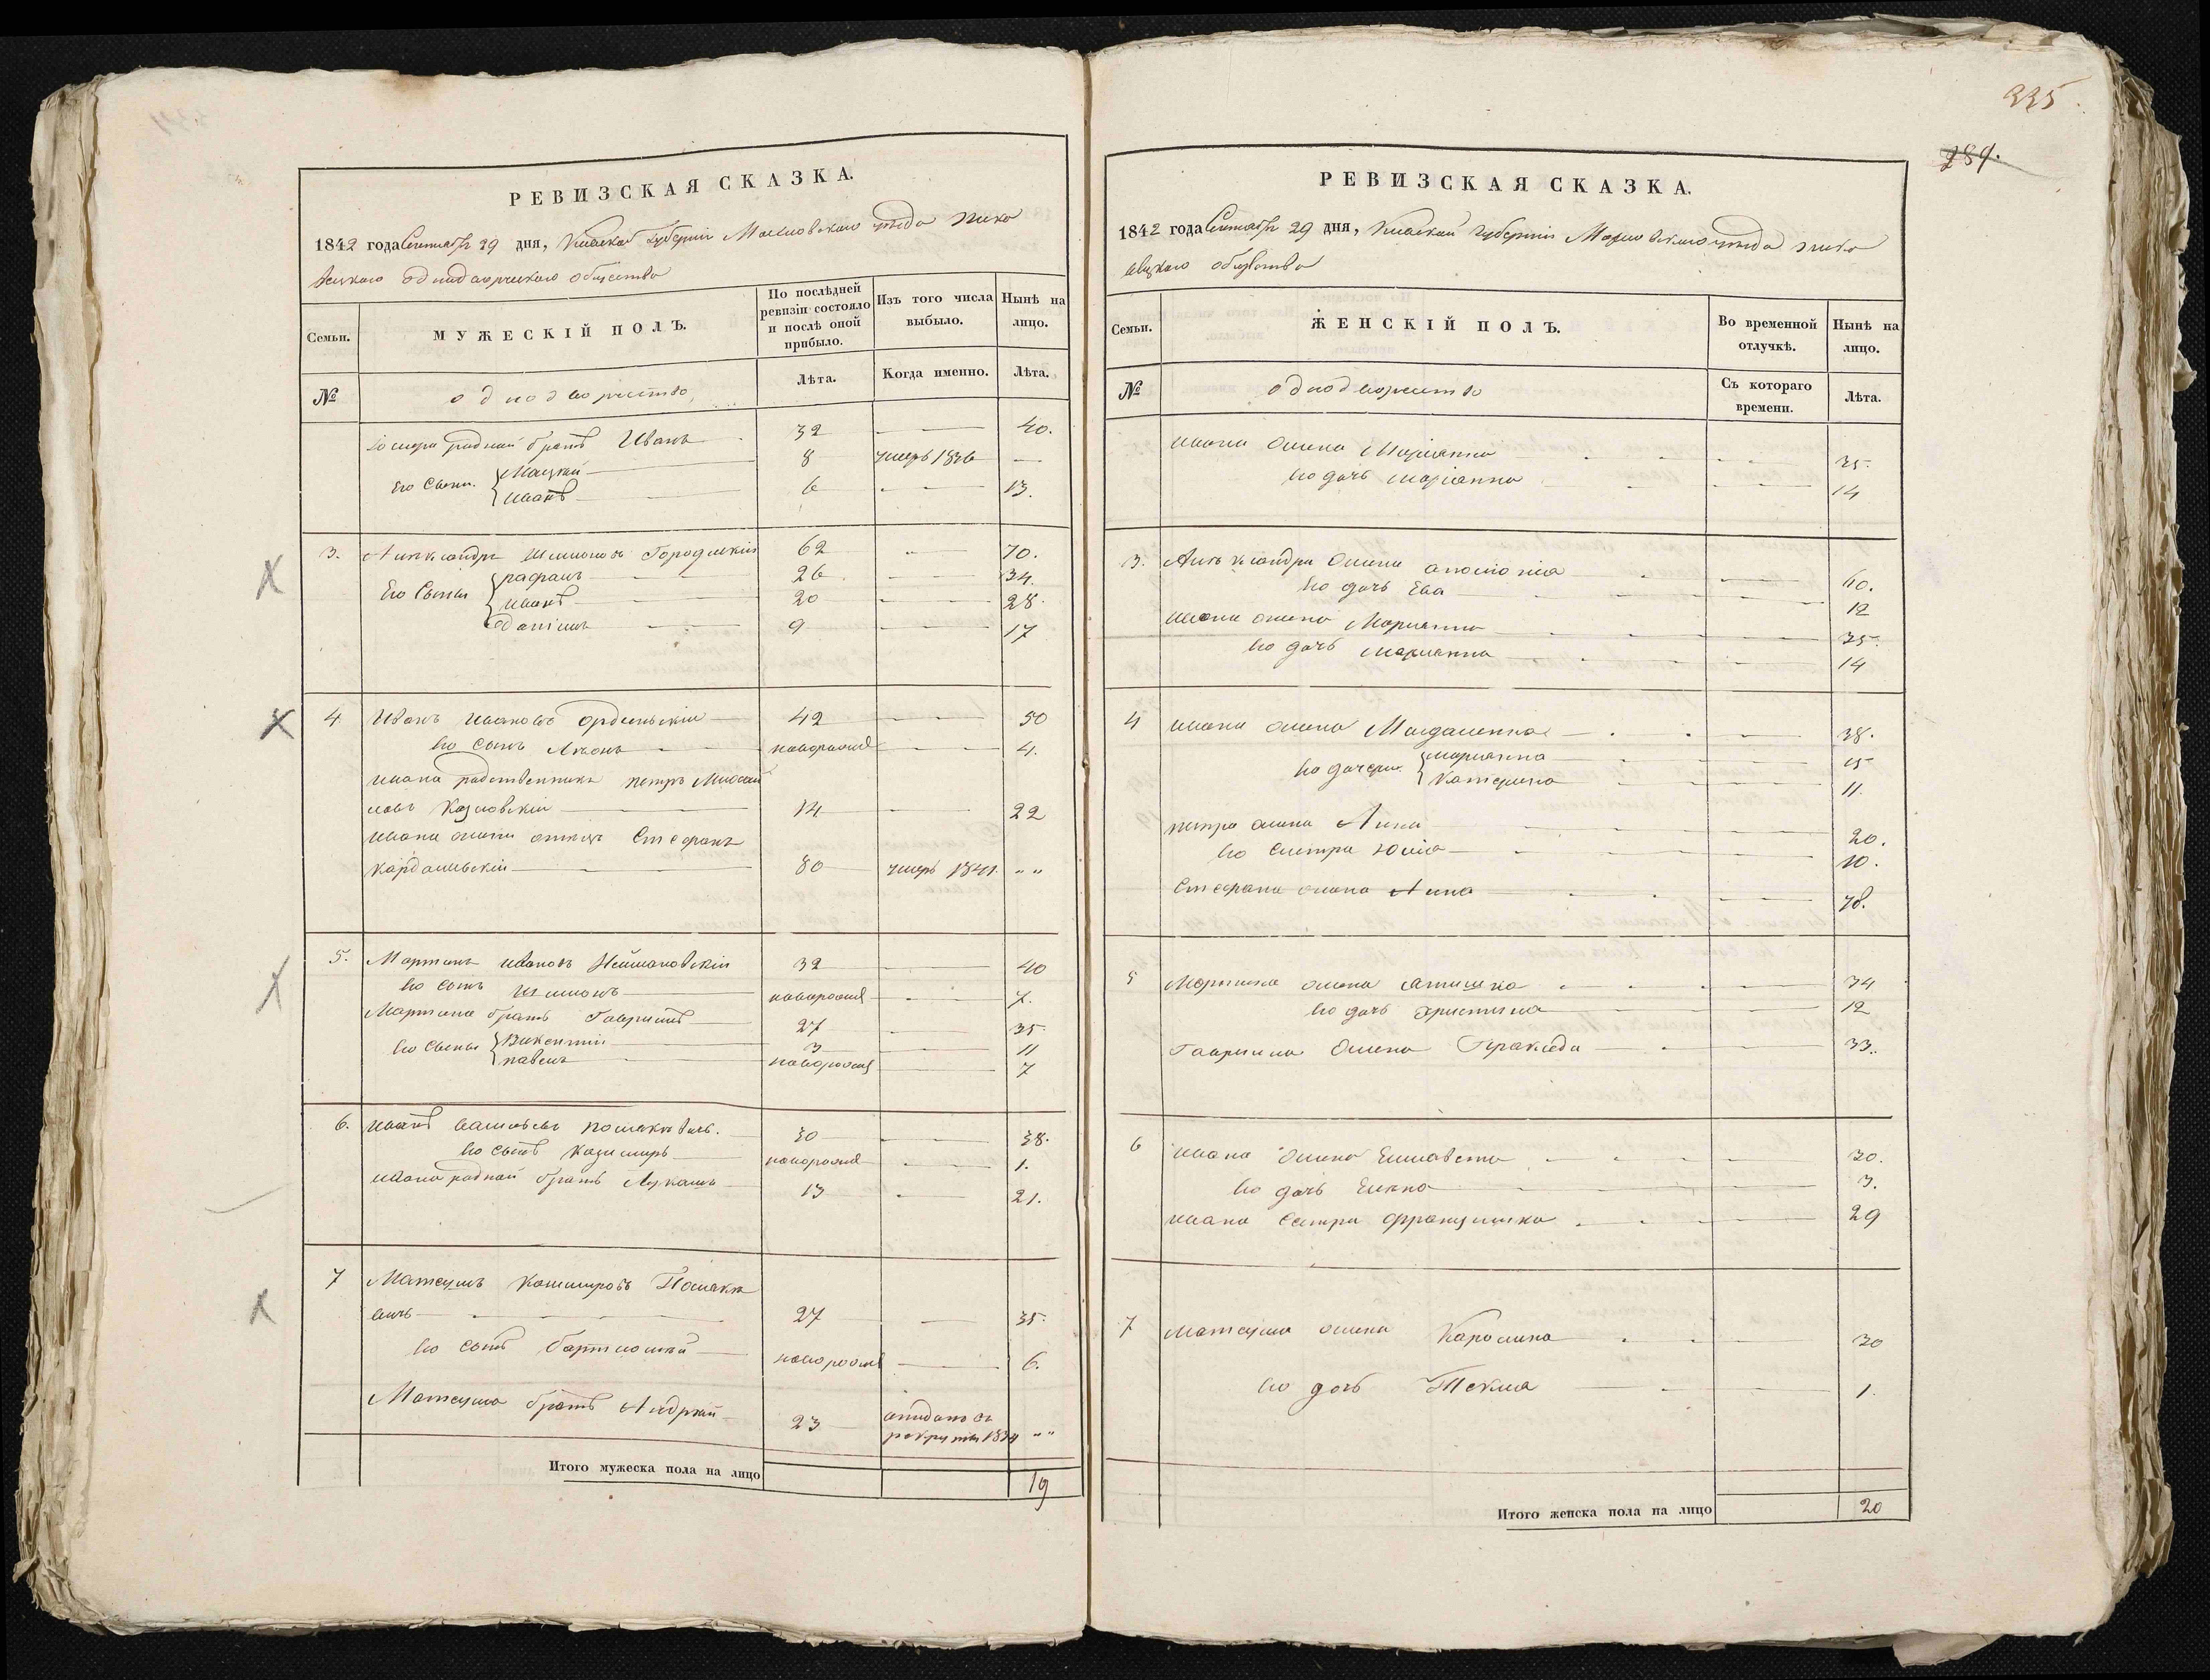 РЕВИЗСКАЯ СКАЗКА.
1842 года Сентябр 29 дня, Киевской губерніи уѣзда
однодворческаго общества
Семьи.
МУЖЕСКІЙ ПОЛЪ.
По послѣдней ревизіи состояло и послѣ оной прибыло.
Изъ того числа выбыло.
Нынѣ на лицо.
№
однодворчество
Лѣта.
Когда именно.
Лѣта.
родной братъ Иванъ 32 40.
Его Сыны. 8 умеръ 1836
иванъ 6 13.
3. Александръ Городецкій 62 70.
Его Сыны рафаль 26 34.
иванъ 20 28.
даніиль 9 17
4 Иванъ ивановъ 42 50
его сынъ новорожд 4.
ивана родственникъ петръ
Козловскій 14 22
ивана жены отецъ Стефанъ
80 умеръ 1841. " "
5. Мартинъ ивановъ 32 40
его сынъ новорожд 7.
Мартина братъ Гаврiилъ 27 35.
его сыны Викентій 3 11
павелъ новорожд 7
6. иванъ 30 38.
его сынъ Казимиръ новорожд 1.
ивана родной братъ Лукашъ 13 21.
7 Матеушъ Казимировъ Полякѣ
вичъ 27 35.
его сынъ новорожд 6.
Матеуша братъ Андрѣй 23 отданъ въ
рекруты 1834 " "
Итого мужеска пола на лицо 19
335.
289.
РЕВИЗСКАЯ СКАЗКА.
1842 года Сентябр 29 дня, Киевской губерніи уѣзда
общества
Семьи.
ЖЕНСКІЙ ПОЛЪ.
Во временной отлучкѣ.
Нынѣ на лицо.
№
однодворчество
Съ котораго времени.
Лѣта.
ивана жена Маріанна 35.
его дочь маріанна 14
3. Александра жена аполонія 60.
его дочь Ева 12
ивана жена Маріанна 35.
его дочь маріанна 14
4 ивана жена Магдалена 38.
его дочери маріанна 15
Катерина 11.
петра жена Анна 20.
его сестра Юлія 10.
Стефана жена Анна 78.
5 Мартина жена 34
его дочь христина 12
Гавріила жена Пракседа 33.
6 ивана жена Елисавета 30.
его дочь Елена 3.
ивана сестра Францишка 29
7 матеуша жена Каролина 30
его дочь Текля 1.
Итого женска пола на лицо 20